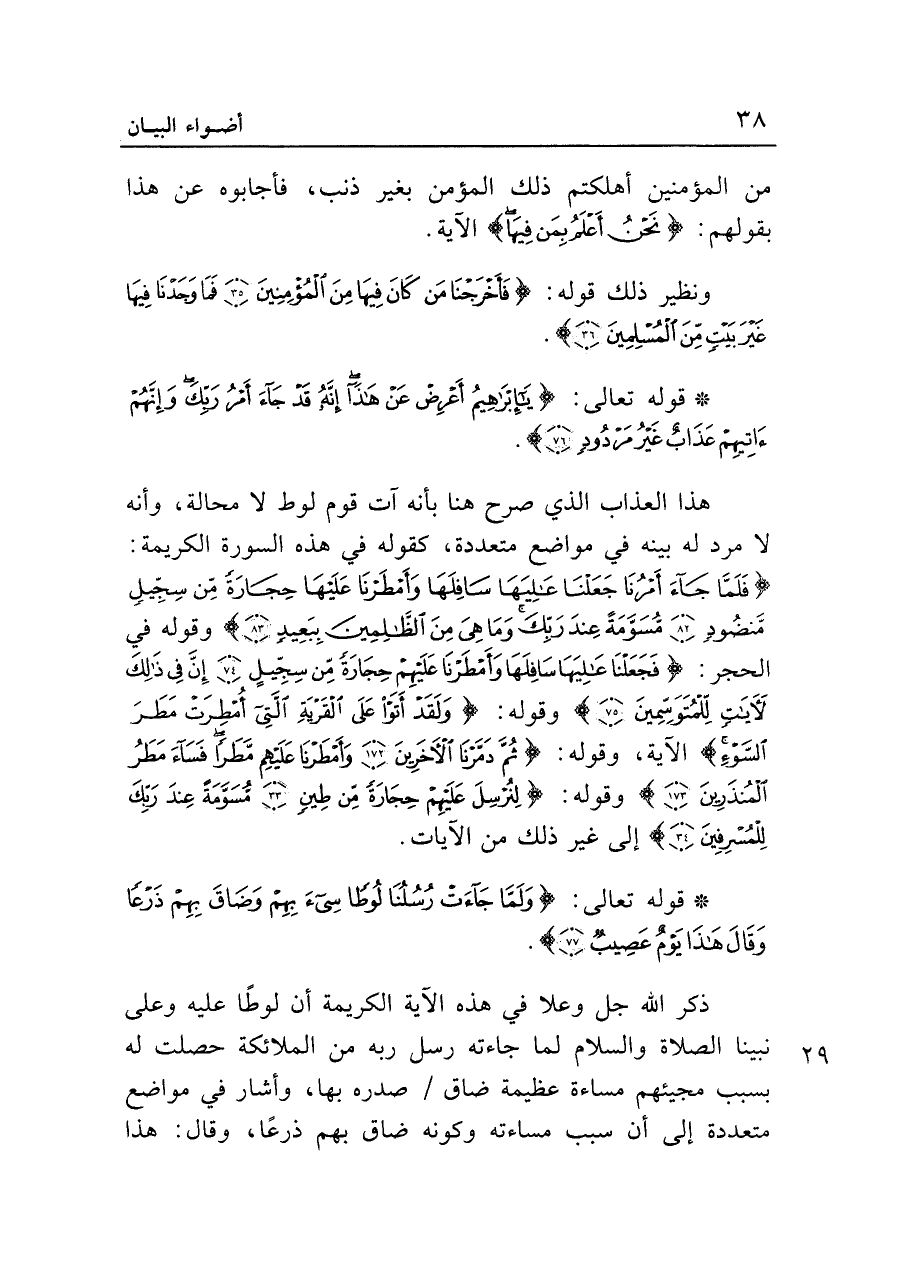 ٣٨ أضواء البيان
من المؤمنين أهلكتم ذلك المؤمن بغير ذنب، فأجابوه عن هذا
بقولهم: ﴿ نَحْنُ أَعْلَمُ بِمَن فِيهَاۖ ﴾ الآية.
ونظير ذلك قوله: ﴿ فَأَخْرَجْنَا مَن كَانَ فِيهَا مِنَ ٱلْمُؤْمِنِينَ ﴿٣٥﴾ فَمَا وَجَدْنَا فِيهَا
غَيْرَ بَيْتٍ مِّنَ ٱلْمُسْلِمِينَ ﴿٣٦﴾ ﴾ .
* قوله تعالى: ﴿ يَٰٓإِبْرَٰهِيمُ أَعْرِضْ عَنْ هَٰذَآۖ إِنَّهُۥ قَدْ جَآءَ أَمْرُ رَبِّكَۖ وَإِنَّهُمْ
ءَاتِيهِمْ عَذَابٌ غَيْرُ مَرْدُودٍ ﴿٧٦﴾ ﴾ .
هذا العذاب الذي صرح هنا بأنه آت قوم لوط لا محالة، وأنه
لا مرد له بينه في مواضع متعددة، كقوله في هذه السورة الكريمة:
﴿ فَلَمَّا جَآءَ أَمْرُنَا جَعَلْنَا عَٰلِيَهَا سَافِلَهَا وَأَمْطَرْنَا عَلَيْهَا حِجَارَةً مِّن سِجِّيلٍ
مَّنضُودٍ ﴿٨٢﴾ مُّسَوَّمَةً عِندَ رَبِّكَۖ وَمَا هِيَ مِنَ ٱلظَّٰلِمِينَ بِبَعِيدٍ ﴿٨٣﴾ ﴾ وقوله في
الحجر: ﴿ فَجَعَلْنَا عَٰلِيَهَا سَافِلَهَا وَأَمْطَرْنَا عَلَيْهِمْ حِجَارَةً مِّن سِجِّيلٍ ﴿٧٤﴾ إِنَّ فِي ذَٰلِكَ
لَأٓيَٰتٍ لِّلْمُتَوَسِّمِينَ ﴿٧٥﴾ ﴾ وقوله: ﴿ وَلَقَدْ أَتَوْا۟ عَلَى ٱلْقَرْيَةِ ٱلَّتِيٓ أُمْطِرَتْ مَطَرَ
ٱلسَّوْءِۚ ﴾ الآية، وقوله: ﴿ ثُمَّ دَمَّرْنَا ٱلْأٓخَرِينَ ﴿١٧٢﴾ وَأَمْطَرْنَا عَلَيْهِم مَّطَرًاۖ فَسَآءَ مَطَرُ
ٱلْمُنذَرِينَ ﴿١٧٣﴾ ﴾ وقوله: ﴿ لِنُرْسِلَ عَلَيْهِمْ حِجَارَةً مِّن طِينٍ ﴿٣٣﴾ مُّسَوَّمَةً عِندَ رَبِّكَ
لِلْمُسْرِفِينَ ﴿٣٤﴾ ﴾ إلى غير ذلك من الآيات.
* قوله تعالى: ﴿ وَلَمَّا جَآءَتْ رُسُلُنَا لُوطًا سِيٓءَ بِهِمْ وَضَاقَ بِهِمْ ذَرْعًا
وَقَالَ هَٰذَا يَوْمٌ عَصِيبٌ ﴿٧٧﴾ ﴾ .
ذكر الله جل وعلا في هذه الآية الكريمة أن لوطًا عليه وعلى
نبينا الصلاة والسلام لما جاءته رسل ربه من الملائكة حصلت له ٢٩
بسبب مجيئهم مساءة عظيمة ضاق / صدره بها، وأشار في مواضع
متعددة إلى أن سبب مساءته وكونه ضاق بهم ذرعًا، وقال: هذا